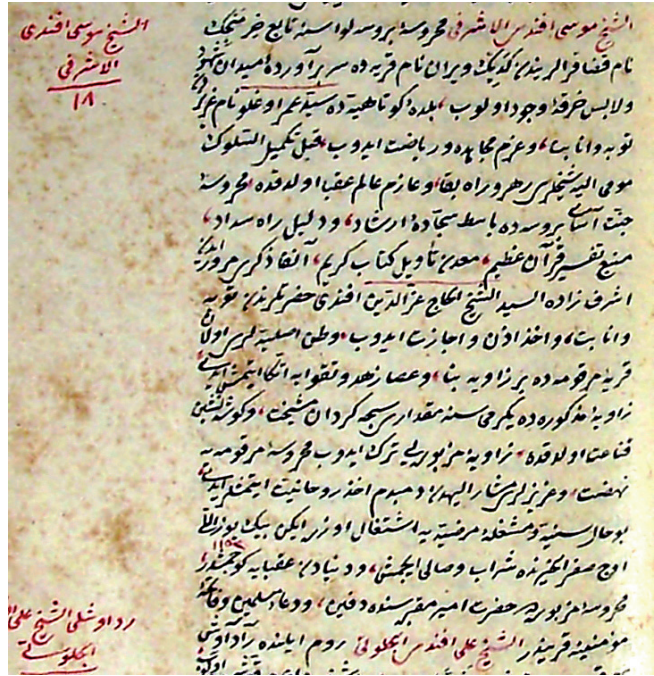 الشيخ موسى افندى
الاشرفى
١٨
الشيخ موسى افندى الاشرفى محروسۀ بروسه لواسنه تابع خرمنجك
نام قضا قرالرندن كديك ويران نام قريه ده سر برآوردۀ ميدان شهود
ولابس خرقۀ وجود اولوب بلدۀ كوتاهيه ده سيد عمر اوغلو نام عزيزه
توبه وانابت وعزم مجاهده ورياضت ايدوب قبل تكميل السلوك
مومى اليه شيخلرى رهرو راه بقا وعازم عالم عقبا اولدقده محروسۀ
جنت آساى بروسه ده باسط سجادۀ ارشاد ودليل راه سداد
منبع تفسير قرآن عظيم معدن تأويل كتاب كريم آنفا ذكرى مرور ايدن
اشرف زاده السيد الشيخ الحاج عزالدين افندى حضرتلرندن توبه
وانابت واخذ اذن واجازت ايدوب وطن اصليه لرى اولان
قريۀ مرقومه ده بر زاويه بنا وعصاى زهد وتقوايه اتكا ايتمشلر ايدى
زاويۀ مذكوره ده يكرمى سنه مقدارى سبحه كردان مشيخت وكوشه نشين
قناعت اولدقده زاويۀ مزبوره يى ترك ايدوب محروسۀ مرقومه يه
نهضت وعزيزلرى مشار اليهدن دمبدم اخذ روحانيت ايتمشلر ايدى
بو حال سنيه ومشغلۀ مرضيه يه اشتغال اوزر ايكن بيك يوز اللى
١١٥٣
اوچ صفر الخيرنده شراب وصالى ايچمش ودنيادن عقبايه كوچمشدر
محروسۀ مزبوره ده حضرت امير مقبره سنده دفين ودعاء مسلمين وفاتحۀ
مؤمنينه قريندر الشيخ على افندى الجلوتى روم ايلنده رادآوشى
رداوشلى الشيخ على
الجلوتى